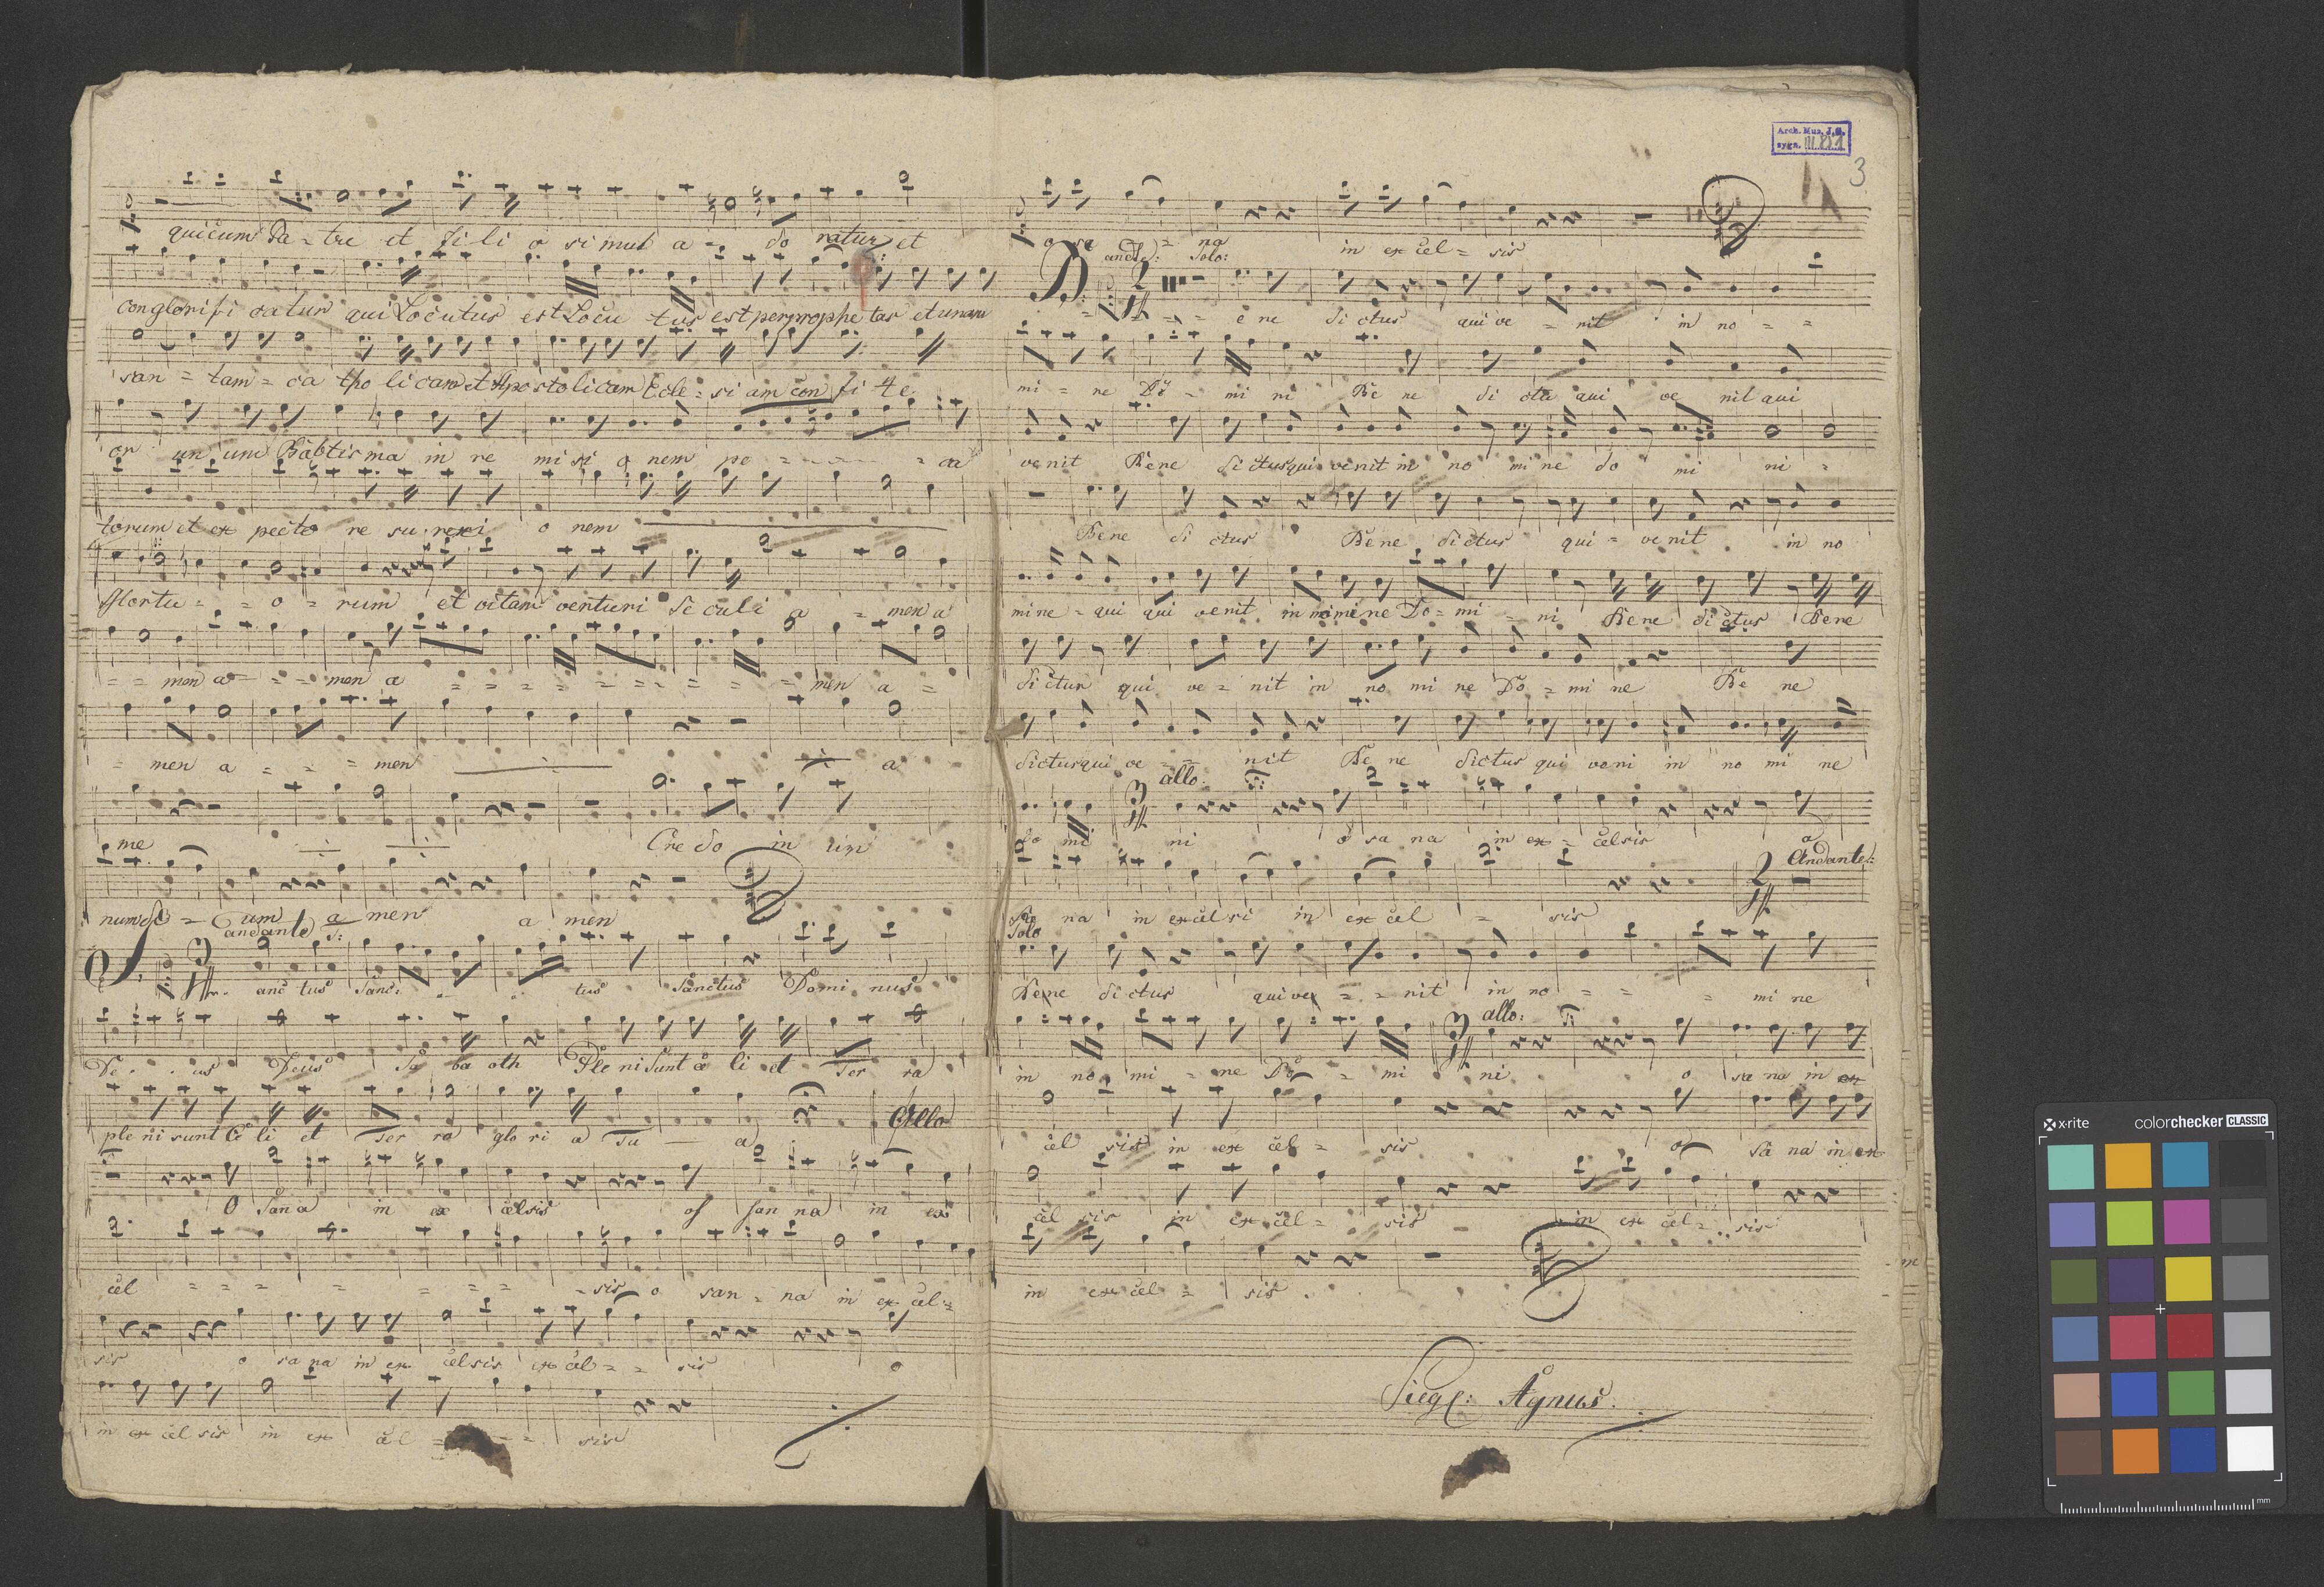 quicum Pa = tre et fi li o si mul a = do ratur et
conglorifi catur qui Locutus est Locu tus est per prophe tas et unam
san = tam = ca tho licam et Apostolicam Ecle = si am con fi te
or un um Babtisma in re misi o nem pe = - - - = ca
torum et ex pecto re su rexi o nem
Mortu = = o = rum et vitam venturi Seculi a = men a
= = men a = = men a = = = = = = = = = men a =
= men a = = = men a
me Credo in un
num De = um a men a men
andante S:
S. anctus Sanc: tus Sanctus Domi nus
De . . us Deus Sa ba oth Ple ni Sunt cæ li et Ter ra
ple ni sunt Cæ li et Ter ra glo ri a Tu — a
Allo
O Sana in ex celsis of san na in ex
cel = = = = = = = - sis o san = na in ex cel =
sis o sa na in ex celsis ex cel = = sis o
in ex cel sis in ex cel = - = sis
Arch. Muz. J.G.
sygn. III.
3
o sa = na in ex cel = sis
and: Solo:
B: = = = = e ne dictus qui ve = nit in no = =
mi = ne Do = mi ni Be ne di ctu qui ve nit qui
venit Bene dictus qui venit in no mi ne do mi ni =
Bene di ctus Bene dictus qui = ve nit in no
mine = qui qui venit in nomine Do = mi = ni Bene dictus Bene
dictus qui ve = nit in no mi ne Do = mi ne Be ne
dictus qui ve = = nit Be ne dictus qui veni in no mi ne
allo.
do mi ni o sa na in ex = celsis o
Andante:
Sa na in excelsi in ex cel = sis
Solo
Bene dictus qui ve = = nit in no = = = mi ne
allo:
in no mi = ne Do = mi ni o sa na in ex
cel sis in ex cel = sis o sa na in ex
cel sis in ex cel = sis in ex cel = sis
in ex cel = sis
Siegl: Agnus.